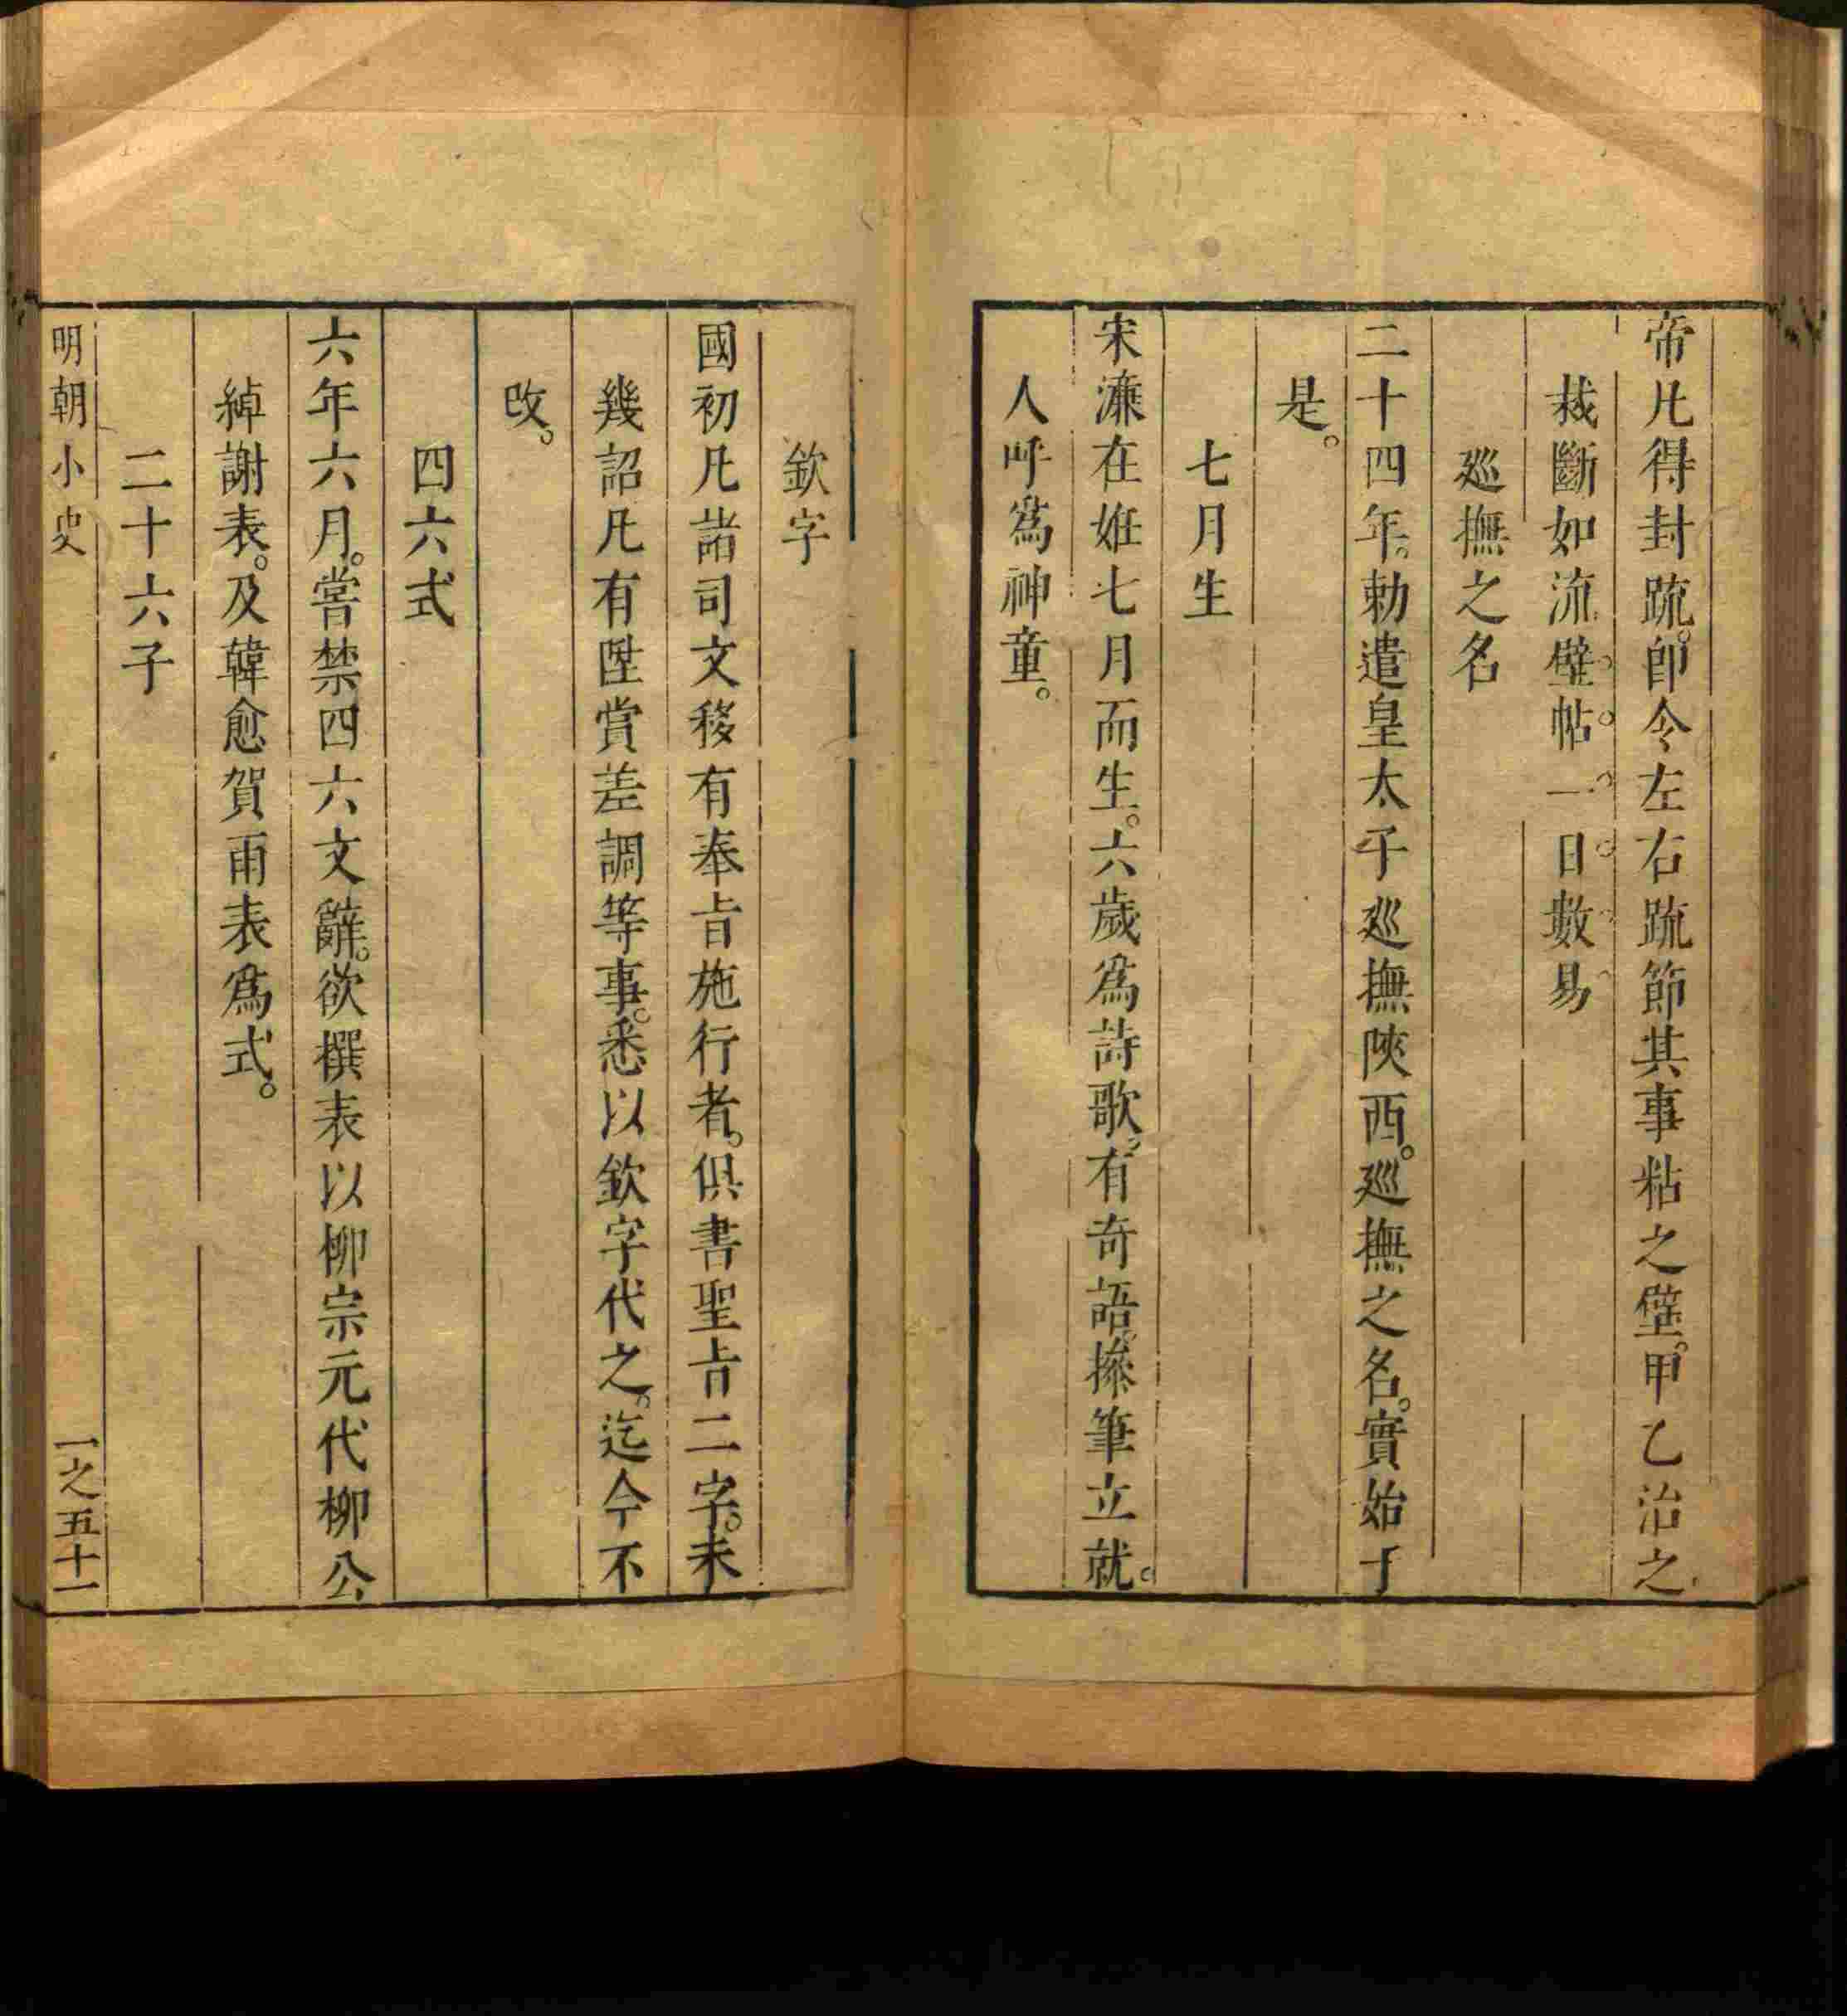 帝凡得封疏。卽令左右疏節其事粘之壁。甲乙治之
裁斷如流。壁帖一日數易
廵撫之名
二十四年。勅遣皇太子廵撫陝西。廵撫之名。實始于
是。
七月生
宋濂在姙七月而生。六歲爲詩歌。有奇語。操筆立就。
人呼爲神童。
欽字
國初凡諸司文移有奉旨施行者。俱書聖旨二字。未
幾詔凡有陞賞差調等事。悉以欽字代之。迄今不
改。
四六式
六年六月。嘗禁四六文辭。欲撰表以柳宗元代柳公
綽謝表。及韓愈賀雨表爲式。
二十六子
明朝小史
一之五十一